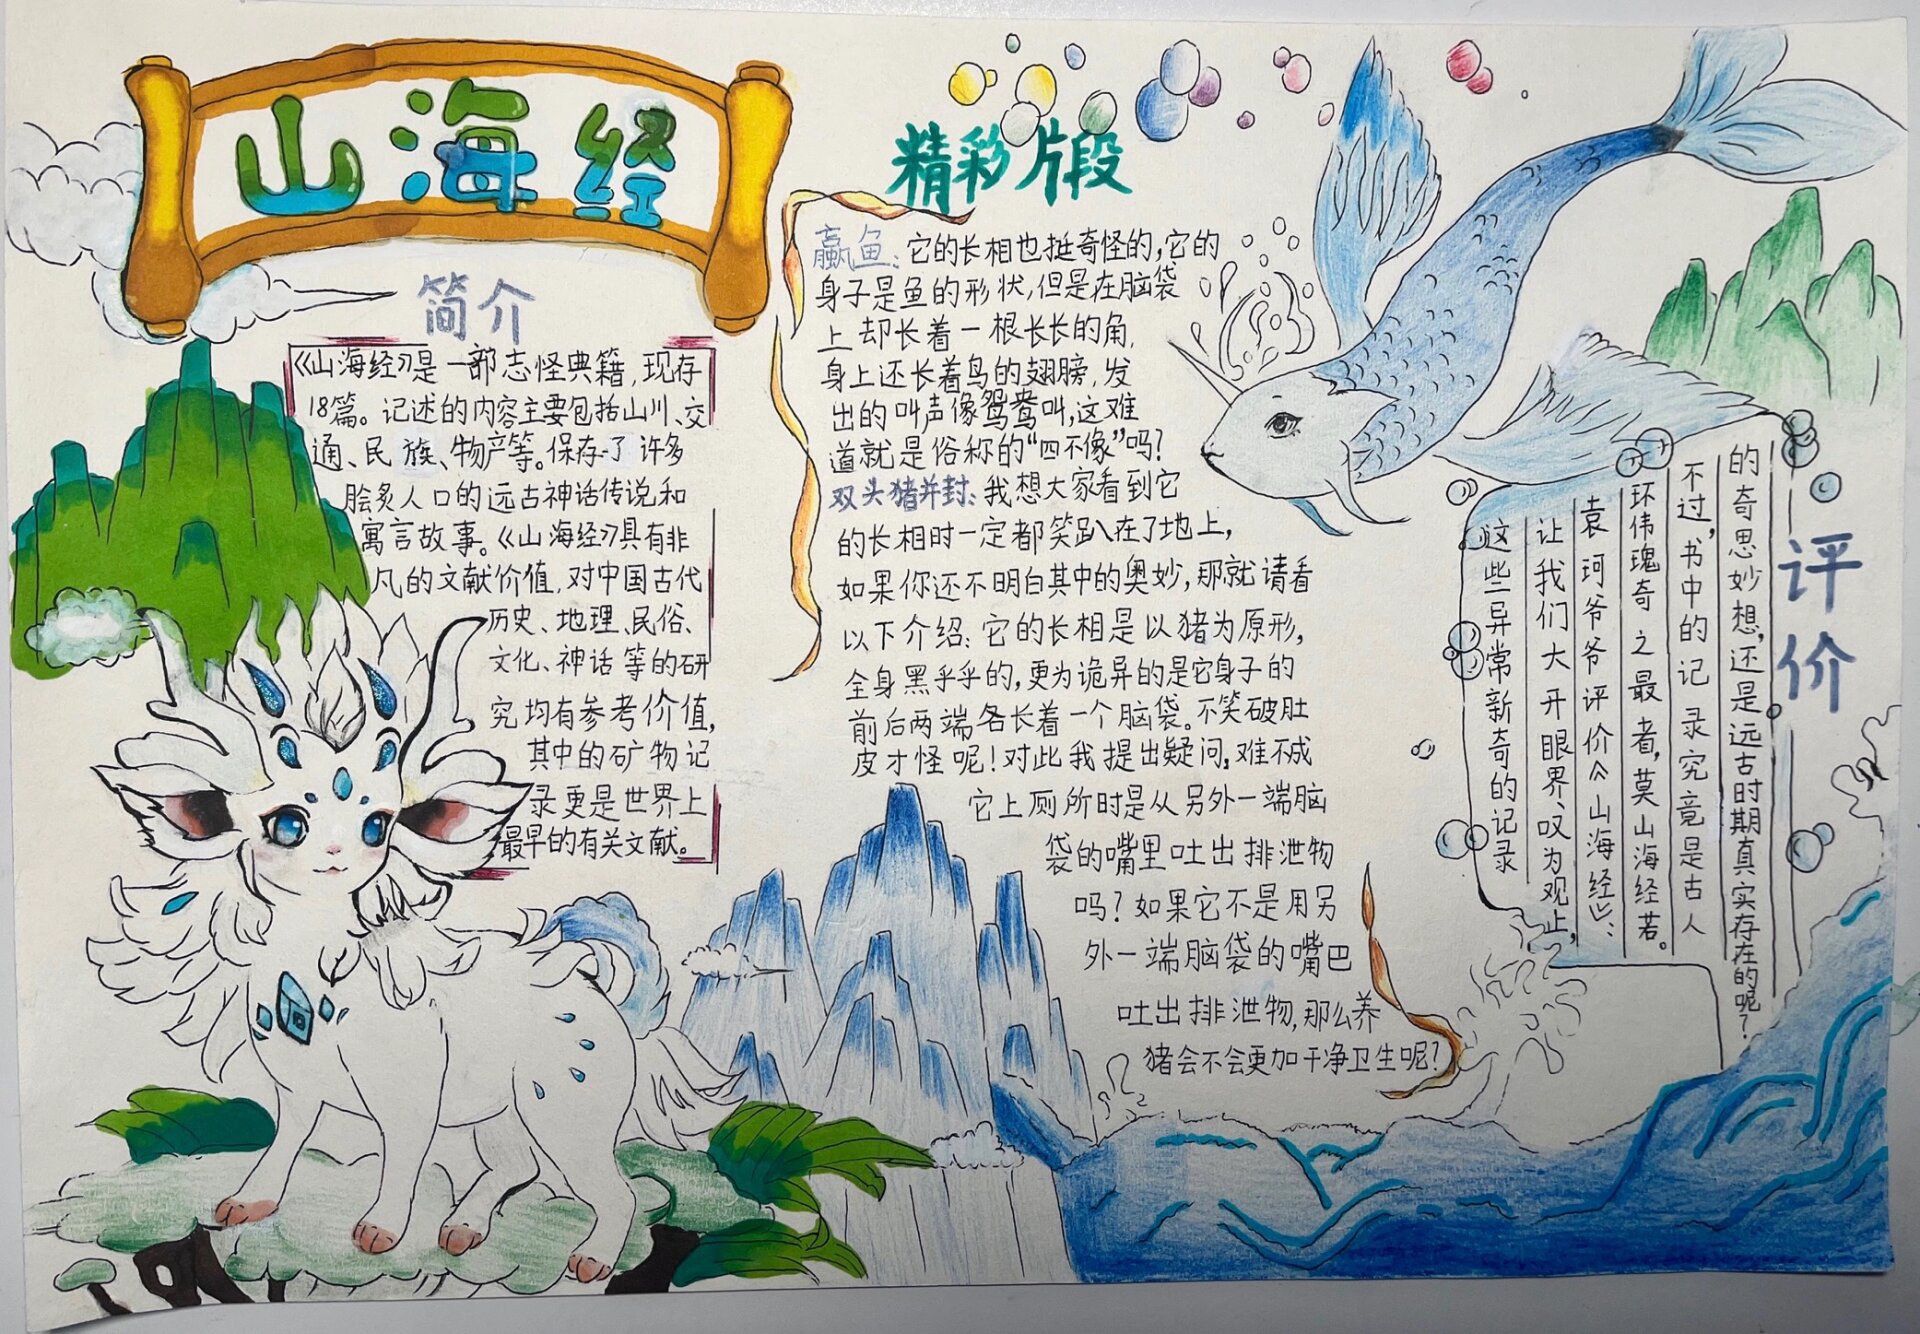 山海经
简介
《山海经》是一部志怪典籍，现存
18篇。记述的内容主要包括山川、交
通、民族、物产等。保存了许多
脍炙人口的远古神话传说和
寓言故事。《山海经》具有非
凡的文献价值，对中国古代
历史、地理、民俗、
文化、神话等的研
究均有参考价值，
其中的矿物记
录更是世界上
最早的有关文献。
精彩片段
赢鱼：它的长相也挺奇怪的，它的
身子是鱼的形状，但是在脑袋
上却长着一根长长的角，
身上还长着鸟的翅膀，发
出的叫声像鸳鸯叫，这难
道就是俗称的“四不像”吗？
双头猪并封：我想大家看到它
的长相时一定都笑趴在了地上，
如果你还不明白其中的奥妙，那就请看
以下介绍：它的长相是以猪为原形，
全身黑乎乎的，更为诡异的是它身子的
前后两端各长着一个脑袋。不笑破肚
皮才怪呢！对此我提出疑问，难不成
它上厕所时是从另外一端脑
袋的嘴里吐出排泄物
吗？如果它不是用另
外一端脑袋的嘴巴
吐出排泄物，那么养
猪会不会更加干净卫生呢？
评价
的奇思妙想，还是远古时期真实存在的呢？
不过，书中的记录究竟是古人
环伟瑰奇之最者，莫山海经若。
袁珂爷爷评价《山海经》：
让我们大开眼界、叹为观止，
这些异常新奇的记录